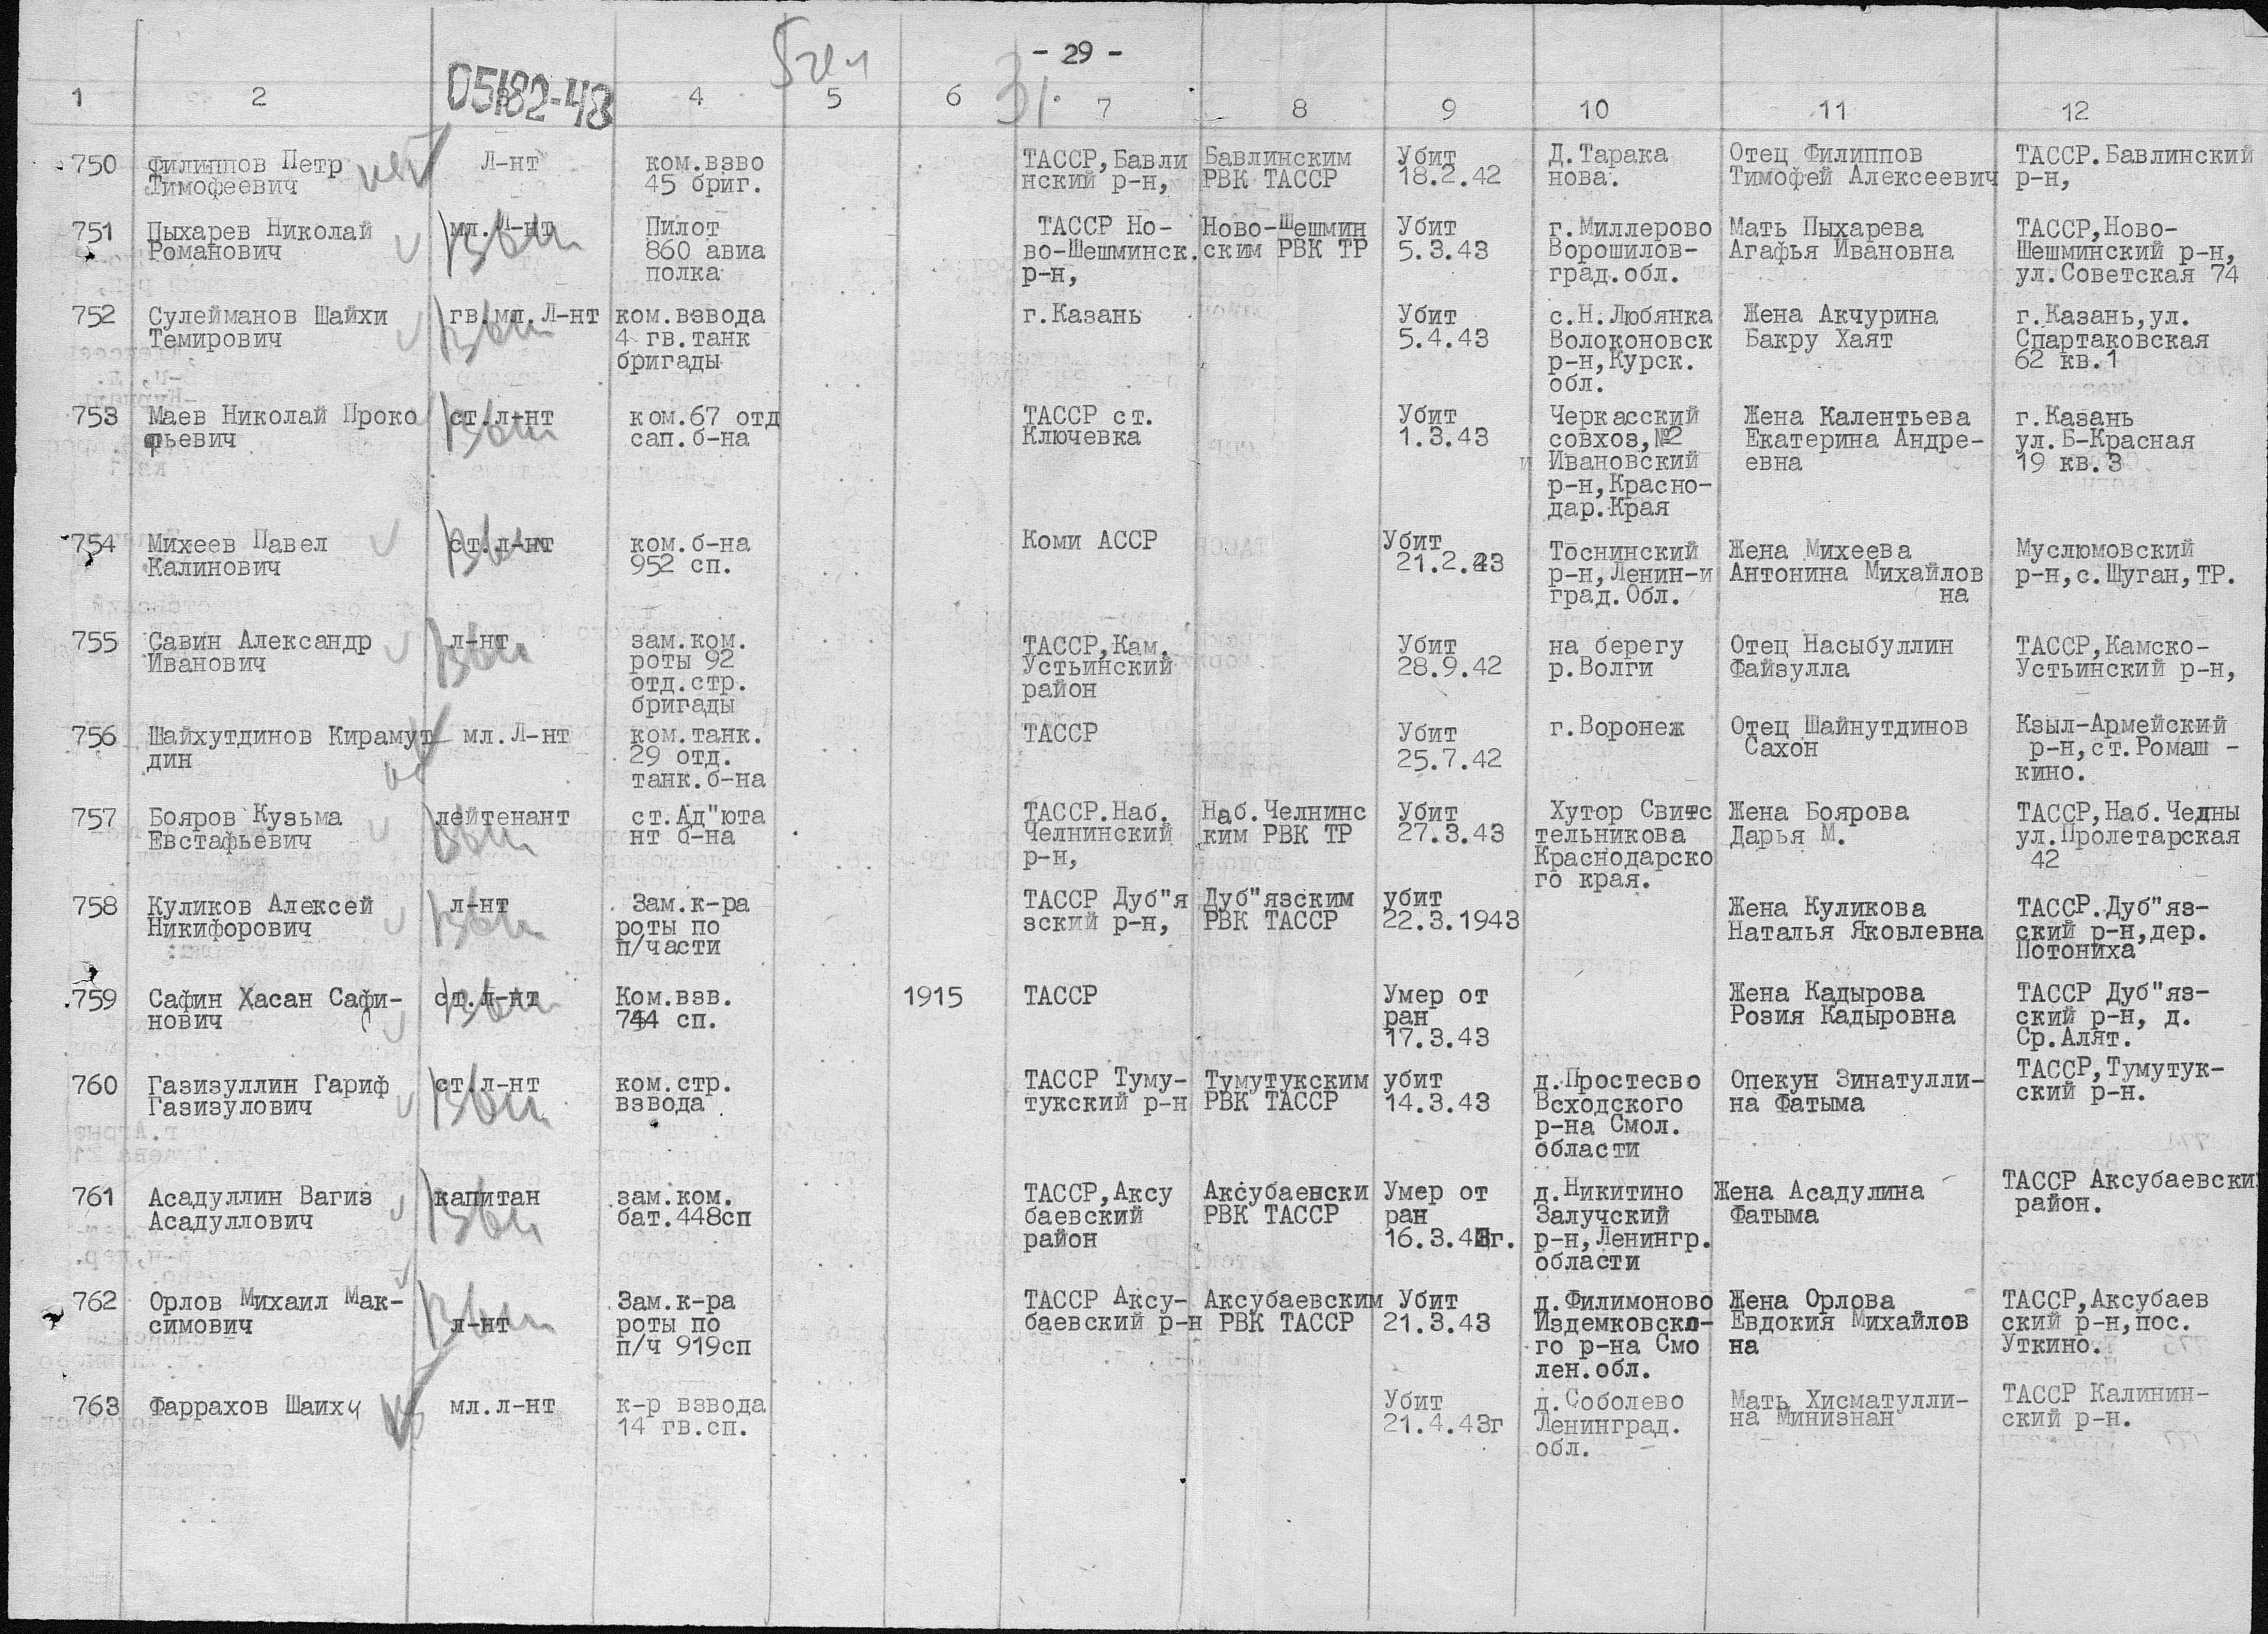 - 29 -
05182-48
31.
1 2 4 5 6 7 8 9 10 11 12
750 Филиппов Петр Л-нт ком.взво ТАССР,Бавли Бавлинским Убит Д.Тарака Отец Филиппов ТАССР.Бавлинский
Тимофеевич 45 бриг. нский р-н, РВК ТАССР 18.2.42 нова. Тимофей Алексеевич р-н,
751 Пыхарев Николай мл.Л-нт Пилот ТАССР Но- Ново-Шешмин Убит г.Миллерово Мать Пыхарева ТАССР,Ново-
Романович 860 авиа во-Шешминск. ским РВК ТР 5.3.43 Ворошилов- Агафья Ивановна Шешминский р-н,
полка р-н, град.обл. ул.Советская 74
752 Сулейманов Шайхи гв.мл.Л-нт ком.взвода г.Казань Убит с.Н.Любянка Жена Акчурина г.Казань,ул.
Темирович 4 гв.танк 5.4.43 Волоконовск Бакру Хаят Спартаковская
бригады р-н,Курск. 62 кв.1
обл.
753 Маев Николай Проко ст.л-нт ком.67 отд ТАССР ст. Убит Черкасский Жена Калентьева г.Казань
фьевич сап.б-на Ключевка 1.3.43 совхоз,№2 Екатерина Андре- ул.Б-Красная
Ивановский евна 19 кв.3
р-н,Красно-
дар.Края
754 Михеев Павел ст.л-нт ком.б-на Коми АССР Убит Тоснинский Жена Михеева Муслюмовский
Калинович 952 сп. 21.2.43 р-н,Ленин-и Антонина Михайлов р-н,с.Шуган,ТР.
град.Обл. на
755 Савин Александр л-нт зам.ком. ТАССР,Кам. Убит на берегу Отец Насыбуллин ТАССР,Камско-
Иванович роты 92 Устьинский 28.9.42 р.Волги Файзулла Устьинский р-н,
отд.стр. район
бригады
756 Шайхутдинов Кирамут мл.Л-нт ком.танк. ТАССР Убит г.Воронеж Отец Шайнутдинов Кзыл-Армейский
дин 29 отд. 25.7.42 Сахон р-н,ст.Ромаш -
танк.б-на кино.
757 Бояров Кузьма лейтенант ст.Ад"юта ТАССР.Наб. Наб.Челнинс Убит Хутор Свитс Жена Боярова ТАССР,Наб.Чедны
Евстафьевич нт б-на Челнинский ким РВК ТР 27.3.43 тельникова Дарья М. ул.Пролетарская
р-н, Краснодарско 42
го края.
758 Куликов Алексей л-нт Зам.к-ра ТАССР Дуб"я Дуб"язским убит Жена Куликова ТАССР.Дуб"яз-
Никифорович роты по зский р-н, РВК ТАССР 22.3.1943 Наталья Яковлевна ский р-н,дер.
п/части Потониха
759 Сафин Хасан Сафи- ст.л-нт Ком.взв. 1915 ТАССР Умер от Жена Кадырова ТАССР Дуб"яз-
нович сп. ран Розия Кадыровна ский р-н, д.
17.3.43 Ср.Алят.
760 Газизуллин Гариф ст.л-нт ком.стр. ТАССР Туму- Тумутукским убит д.Простесво Опекун Зинатулли- ТАССР,Тумутук-
Газизулович взвода тукский р-н РВК ТАССР 14.3.43 Всходского на Фатыма ский р-н.
р-на Смол.
области
761 Асадуллин Вагиз капитан зам.ком. ТАССР,Аксу Аксубаевски Умер от д.Никитино Жена Асадулина ТАССР Аксубаевски
Асадуллович бат.448сп баевский РВК ТАССР ран Залучский Фатыма район.
район 16.3.43г. р-н,Ленингр.
области
762 Орлов Михаил Мак- Зам.к-ра ТАССР Аксу- Аксубаевским Убит д.Филимоново Жена Орлова ТАССР,Аксубаев
симович л-нт роты по баевский р-н РВК ТАССР 21.3.43 Издемковско- Евдокия Михайлов ский р-н,пос.
п/ч 919сп го р-на Смо на Уткино.
лен.обл.
763 Фаррахов Шаихи мл.л-нт к-р взвода Убит д.Соболево Мать Хисматулли- ТАССР Калинин-
14 гв.сп. 21.4.43г Ленинград. на Минизнан ский р-н.
обл.